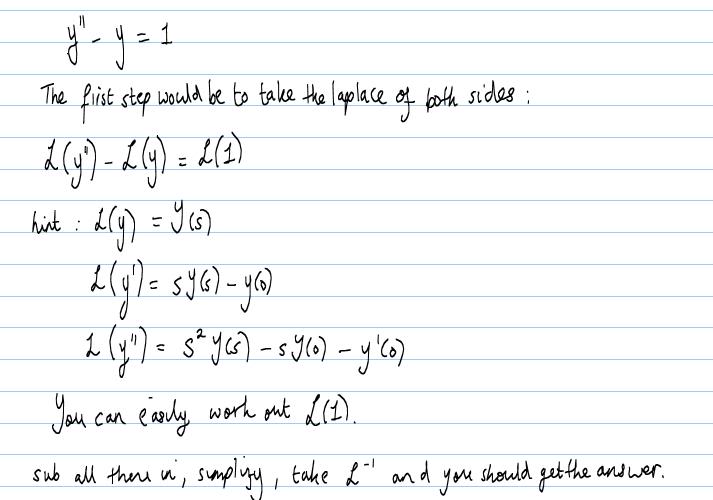 y'' - y = 1
The first step would be to take the laplace of both sides :
L(y'') - L(y) = L(1)
hint : L(y) = Y(s)
L(y') = sY(s) - y(0)
L(y'') = s² Y(s) - sY(0) - y'(0)
You can easily work out L(1).
sub all them in, simplify, take L⁻¹ and you should get the answer.